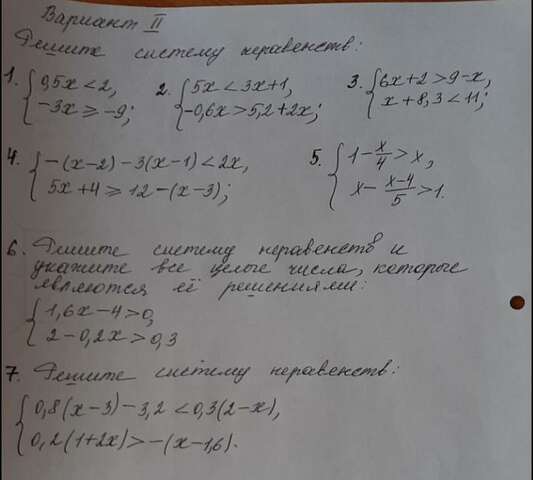 Вариант II
Решите систему неравенств:
1. { 0,5x < 2, 2. { 5x < 3x+1, 3. { 6x+2 > 9-x,
-3x ≥ -9; -0,6x > 5,2+2x; x+8,3 < 11;
4. { -(x-2) - 3(x-1) < 2x, 5. { 1 - x/4 > x,
5x+4 ≥ 12-(x-3); x - (x-4)/5 > 1.
6. Решите систему неравенств и
укажите все целые числа, которые
являются её решениями:
{ 1,6x-4 > 0,
2-0,2x > 0,3
7. Решите систему неравенств:
{ 0,8(x-3) - 3,2 < 0,3(2-x),
0,2(1+2x) > -(x-1,6).